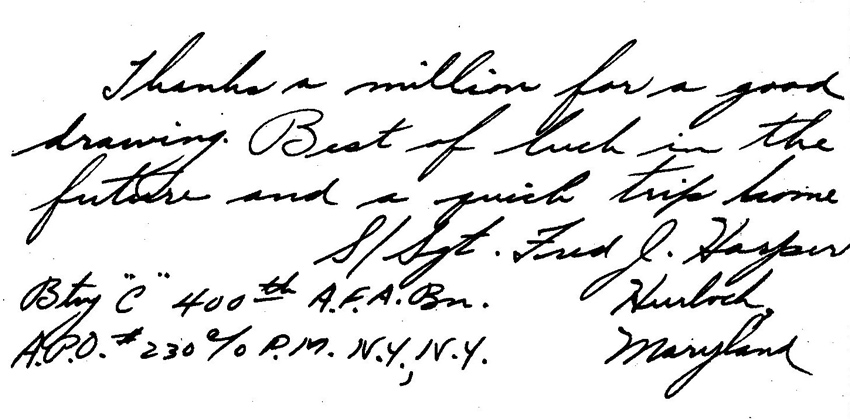 Thanks a million for a good
drawing. Best of luck in the
future and a quick trip home
S/Sgt. Fred J. Harper
Btry "C" 400th A.F.A. Bn. Hurlock,
A.P.O. # 230 c/o P.M. N.Y., N.Y. Maryland